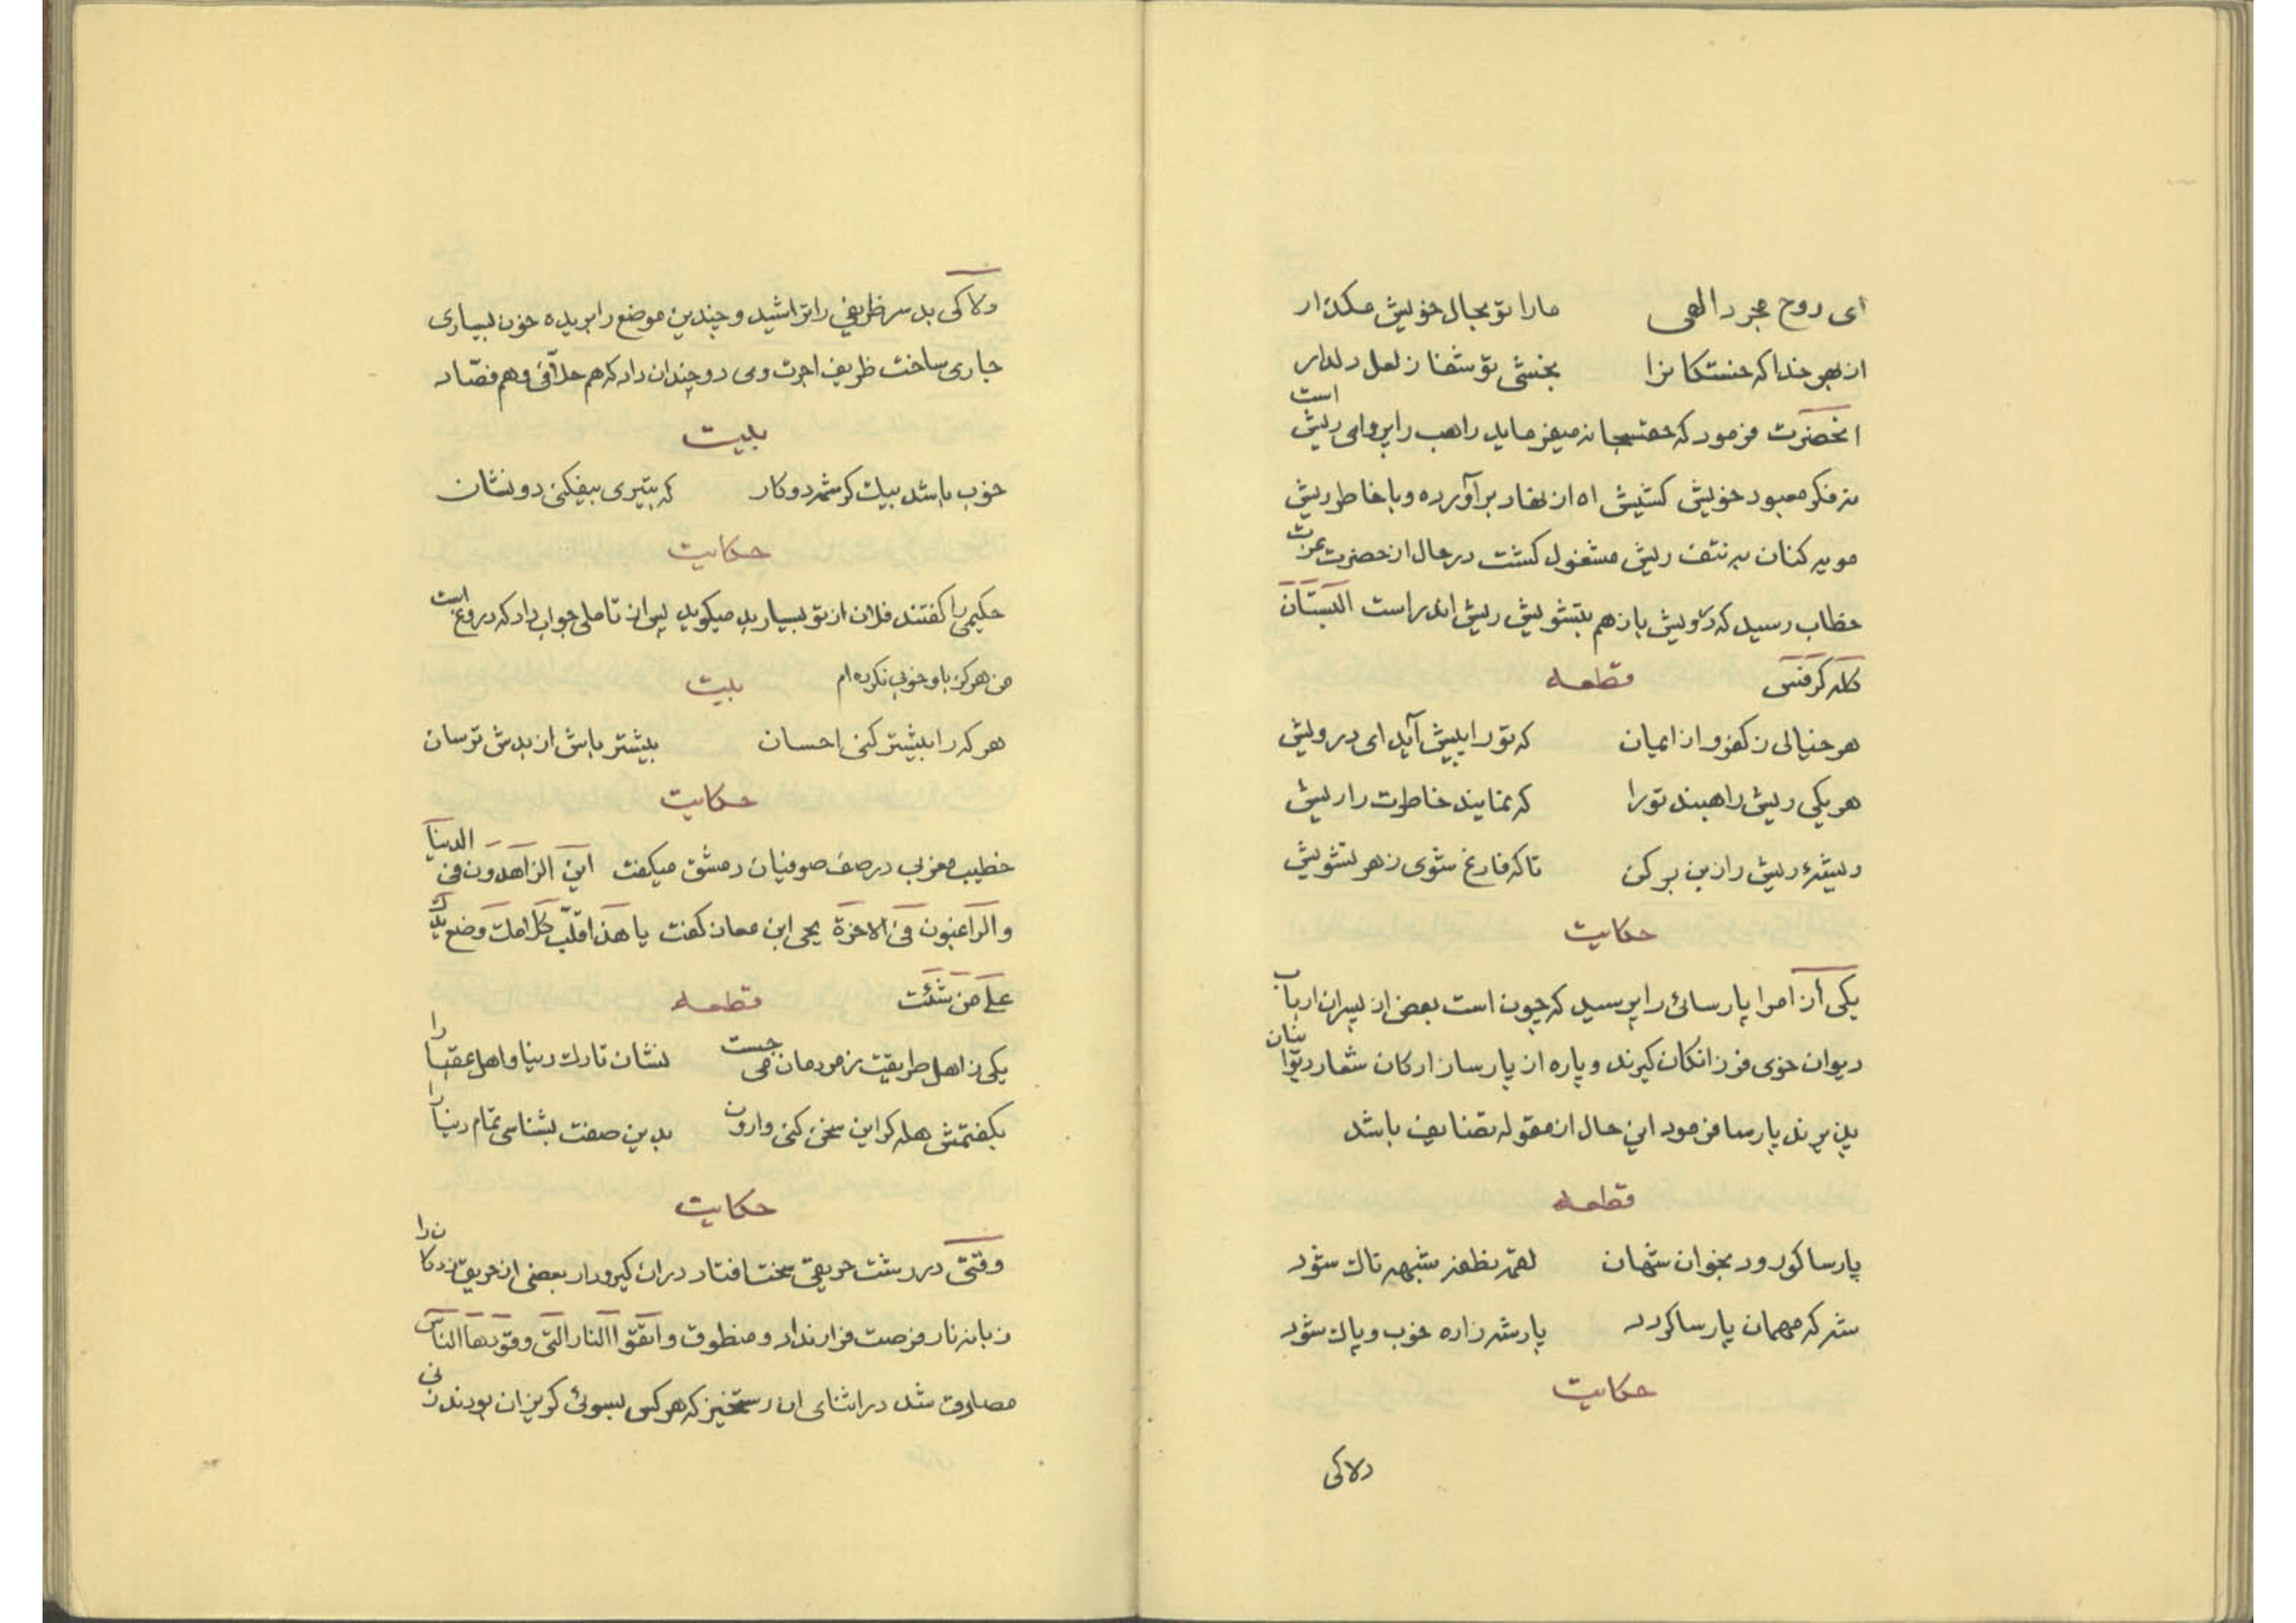 ای روح مجرد الهی مارا تو بحال خویش مکذار
از بهر خدا که خستکانرا بخشی تو شفا ز لعل دلدار
انحضرت فرمود که حقسبحانه میفرماید راهب را پروای ریش است
نه فکر معبود خویش کشیش اه از نهاد برآورده و با خاطر ریش
مویه کنان به نتف ریش مشغول کشت در حال از حضرت عزت
خطاب رسید که درویش باز هم بتشویش ریش اندر است
کله کرفتی قطعه
هر خیالی ز کفر و از ایمان که تو را پیش آید ای درویش
هر یکی ریش راهبند تو را که نمایند خاطرت را ریش
ریشهٔ ریش را ز بن بر کن تا که فارغ شوی ز هر تشویش
حکایت
یکی از امرا پارسائی را پرسید که چون است بعضی از پسران ارباب
دیوان خوی فرزانکان کیرند و پاره از پارسازادکان شعار دیوانان
پذیرند پارسا فرمود این حال از مقوله تضایف باشد
قطعه
پارسا کو رود بخوان شهان لقمه نطفه شبهه ناك شود
شه که مهمان پارسا کردد پادشه زاده خوب و پاك شود
حکایت
دلاکی
دلاکی بد سر ظریفی را تراشید و چندین موضع را بریده خون بسیاری
جاری ساخت ظریف اجرت وی دو چندان داد که هم حلاقی و هم فصاد
بیت
خوب باشد بیك کرشمه دو کار که بتیری بیفکنی دو نشان
حکایت
حکیمی را کفتند فلان از تو بسیار بد میکوید پس از تاملی جواب داد که دروغ است
من هرکز با او خوبی نکرده ام بیت
هر که را بیشتر کنی احسان بیشتر باش از بدش ترسان
حکایت
خطیب مغربی در صف صوفیان دمشق میکفت این الزاهدون فی الدنیا
والراغبون فی الاخرة یحی ابن معان کفت یا هذا قلب کلامك وضع یدك
علی من شئت قطعه
یکی ز اهل طریقت ز مردمان می جست نشان تارك دنیا و اهل عقبا را
بکفتمش هله کر این سخن کنی وارون بدین صفت بشناسی تمام دنیا را
حکایت
وقتی در رشت حریقی سخت افتاد دران کیرودار بعضی از حریق زدکان را
زبانه نار فرصت فرار نداد و منطوق واتقوا النار التی وقودها الناس
مصادق شد در اثنای ان رستخیز که هر کس بسوئی کریزان بودند زنی